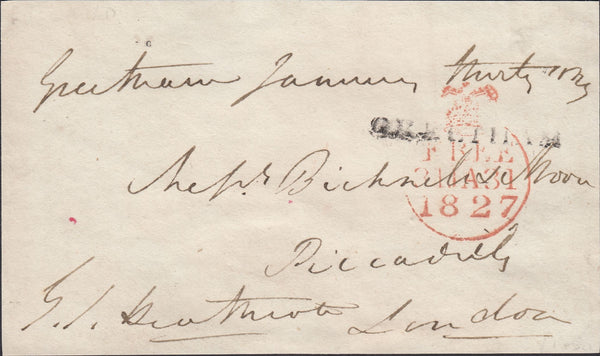 Greetham January thirty 1827
GREETHAM
FREE
31 JA 31
1827
Messrs Bicknell & Moon
Piccadilly
G. J. Heathcote London